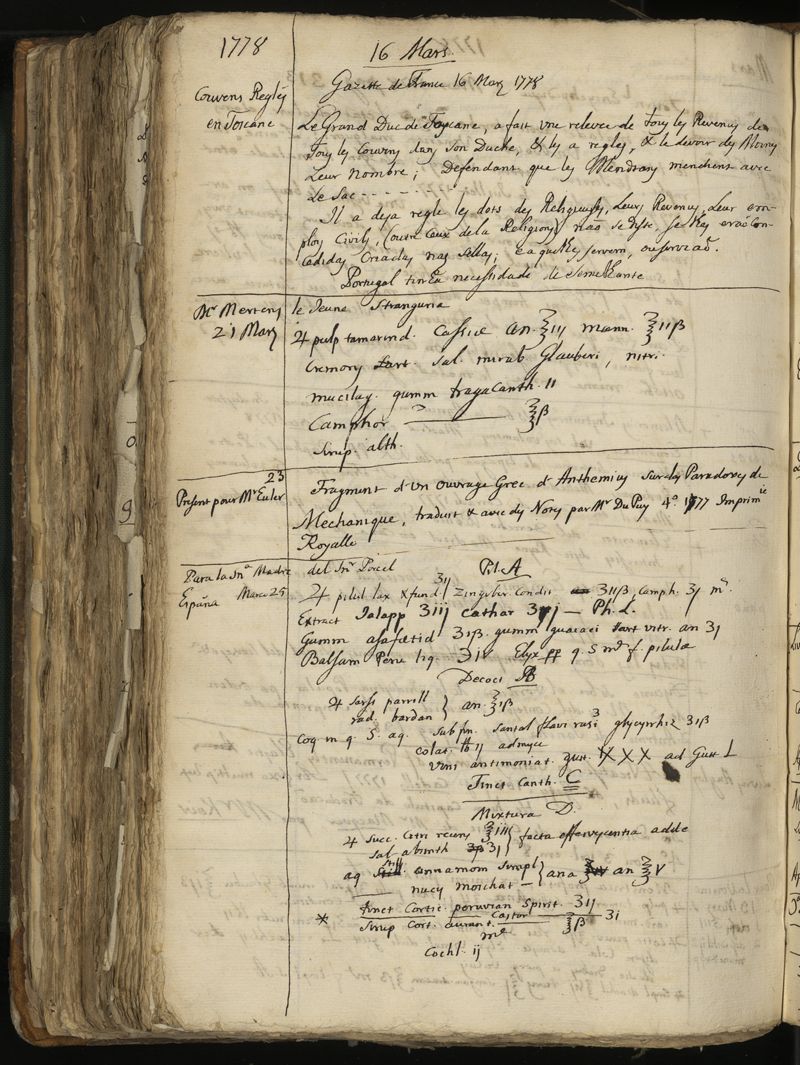 1778
16 Mars
Gazette de France 16 Mars 1778
Couvens Regléz
en Toscane
Le Grand Duc de Toscane, a fait une relevee de Tous les Revenus de
Tous les Couvens dans Son Duché, & les a regles, & le devoir des Moines
Leur Nombre; Defendant que les Mendians mendient avec
Le Sac - - - - - - -
Il a deja regle les dots des Religieuses, Leurs Revenus, Leur em-
ploy Civils, (outre Ceux de la Religion) nao se diste, se Elles erão Con-
Creadas nas Sellas; e a que Elles servem, ou servirão.
Portugal tinha necessidade de Semelhante
Mr Mertens
21 Mars
le Jeune Stranguria
♃ pulp tamarind. Cassiæ an. ℥iij mann. ℥iiβ
Cremory tart. Sal. mirab Glauberi, nitri.
mucilag. gumm tragacanth. 11
Camphor ——— ℥β
Sirup. alth.
23
Present pour Mr Euler
Fragment d'un Ouvrage Grec d'Anthemius Sur des Paradoxes de
Mechanique, traduit & avec des Notes par Mr Du Puy 4º 1777 Imprimie
Royalle
Para la Sra Madre
España Marco 25
del Snr Poucel
Pil. A
♃ pilul lax Xfund ʒij Zingiber Condit ʒiiβ Camph. ʒj m.
Extract Jalapp ʒiij Cathar ʒvj — Ph. L.
Gumm asafœtid ʒiβ. gumm guaiaci tart vitr. an ʒj
Balsam Peru liq. ʒiv Elyx pp q. S md f. pilulæ
Decoct B
♃ Sarss parrill
rad. bardan } an. ℥iβ
Coq in q. S. aq. Sub fin. Santal flavi rasi ʒ glycyrrhiz ʒiβ
Colat. ℔ ij admisce
Vini antimoniat. gutt. XXX ad Gutt L
Tinct Canth. C
Mixtura D.
♃ Succ. Citri recens ℥iiij } facta effervescentia adde
Sal absinth ʒj
aq Still. Cinnamom Simpl } ana an ℥v
—— nucis moschat —
Tinct Cortic. peruvian Spirit. ʒij
Castor ʒi
* Sirup Cort. aurant. ℥β
me
Cochl. ij